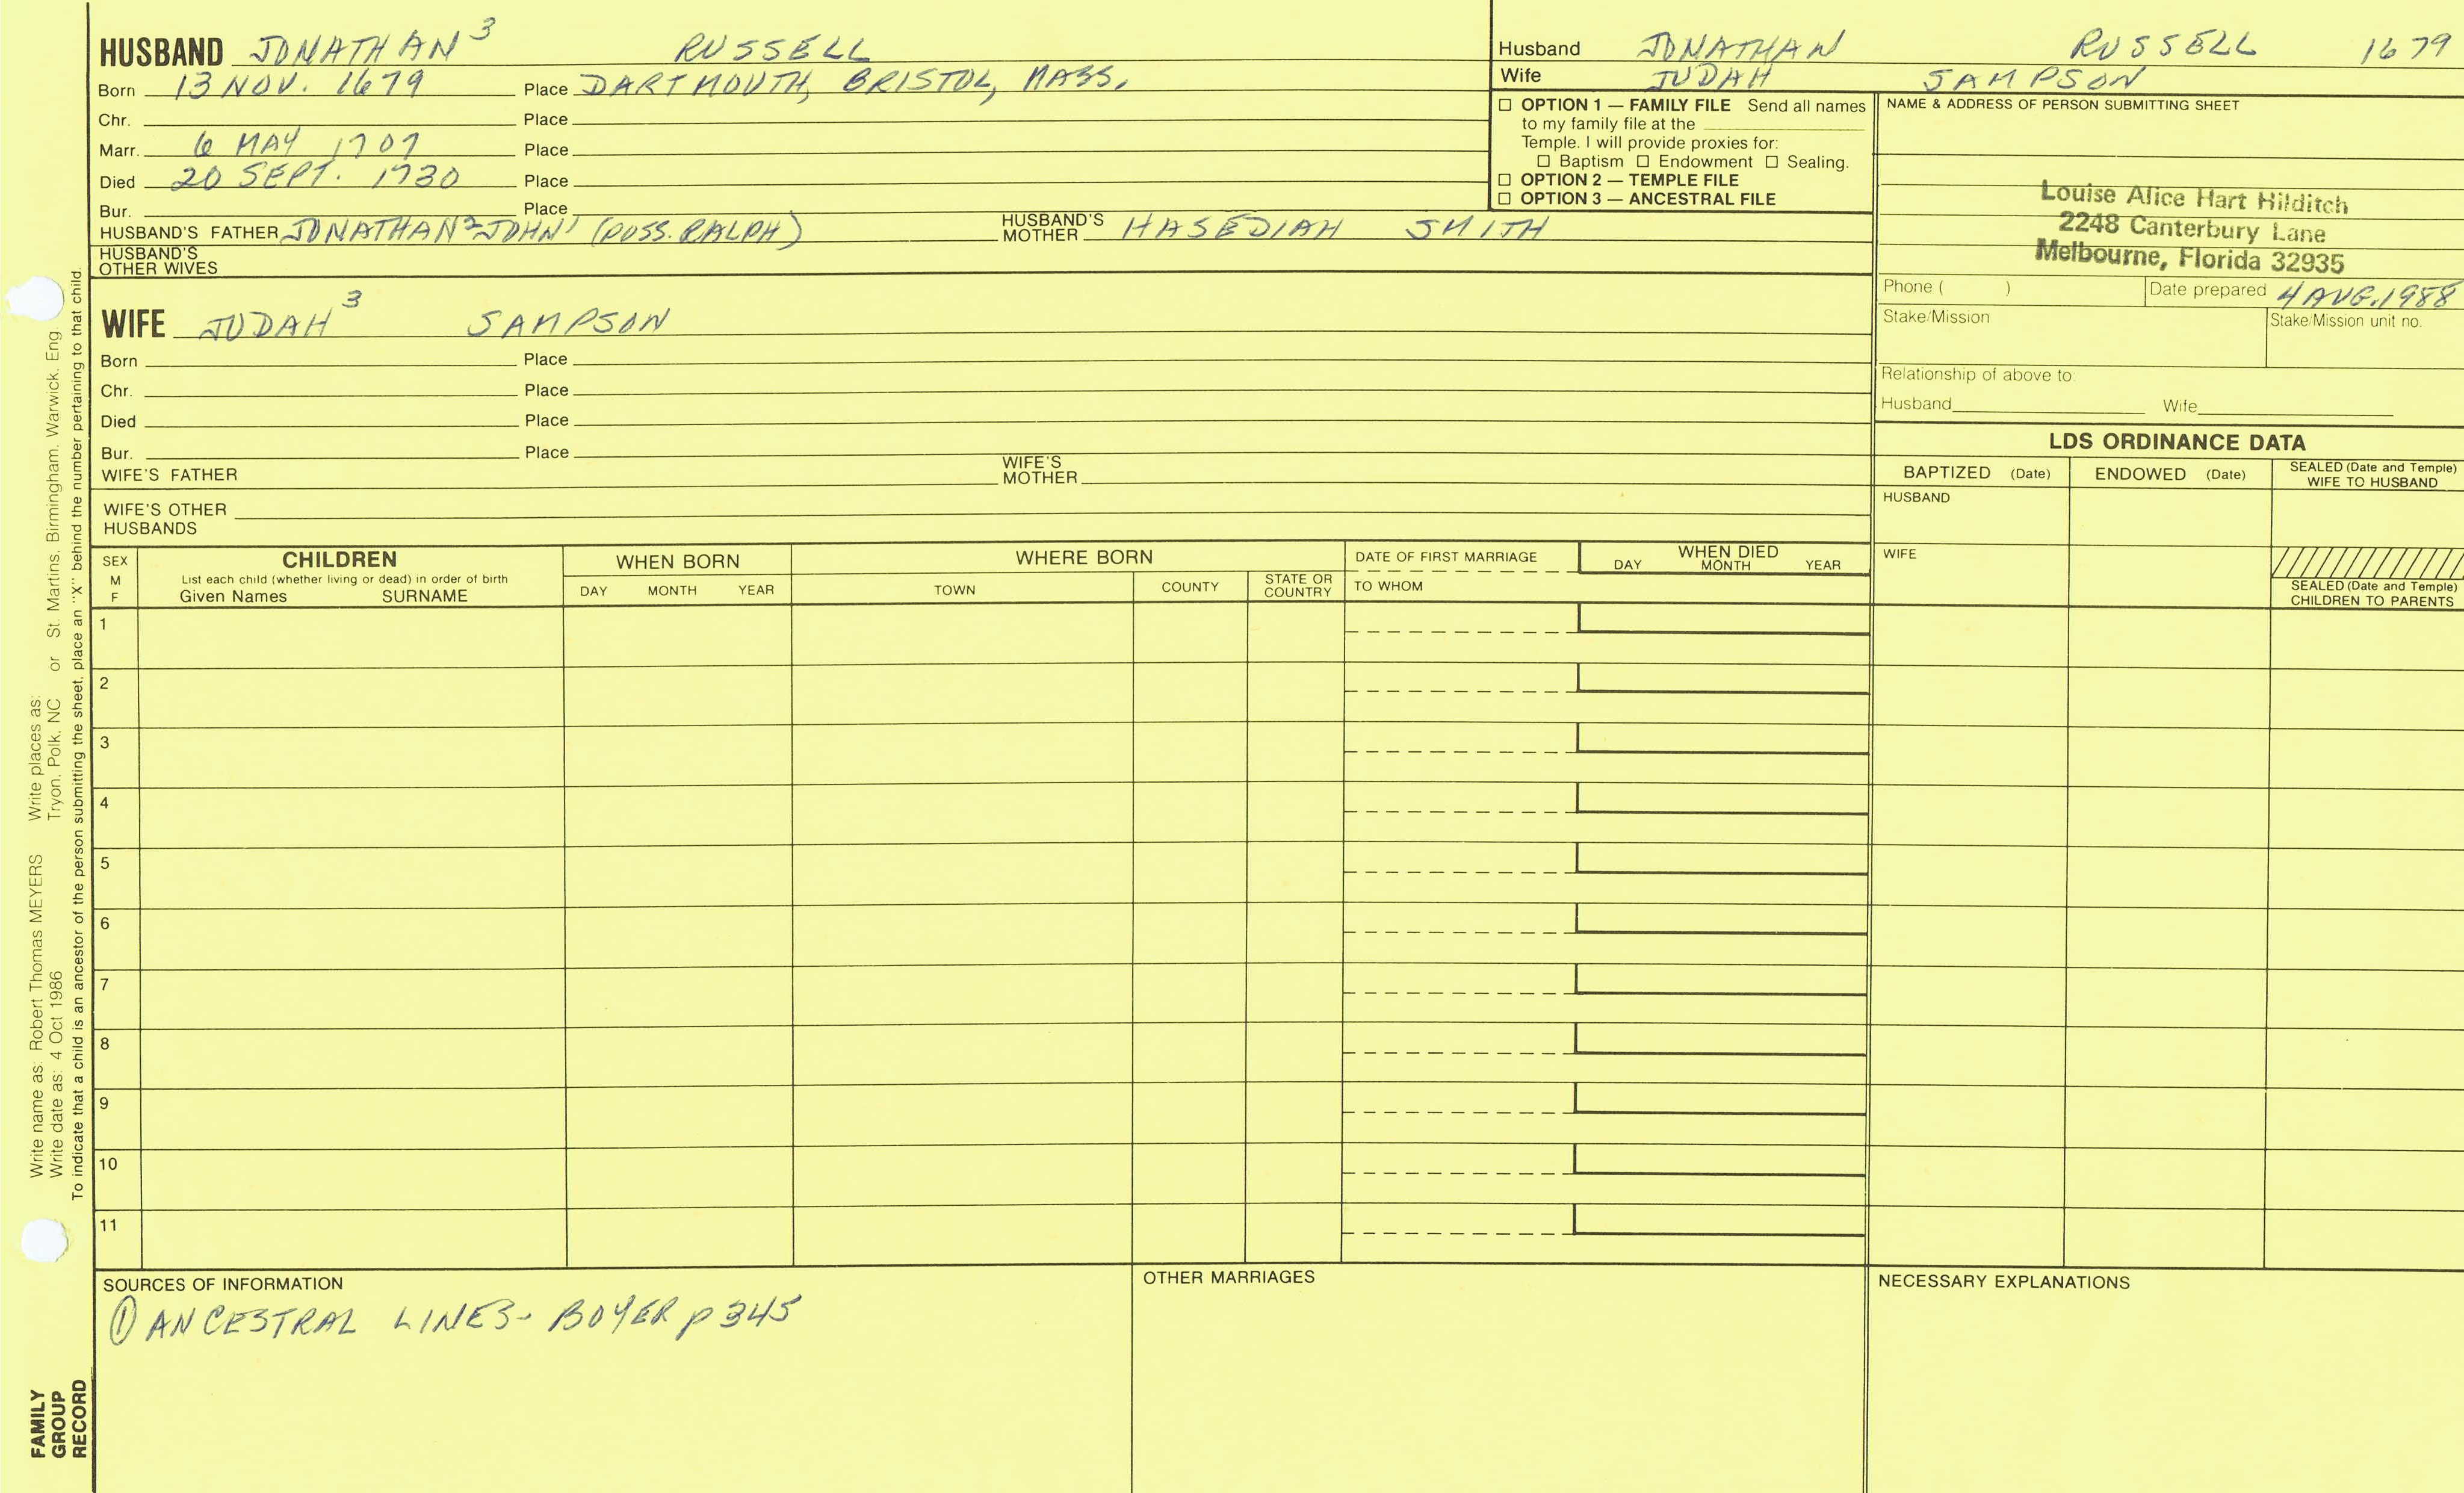 HUSBAND JONATHAN³ RUSSELL
Born 13 NOV. 1679 Place DARTMOUTH, BRISTOL, MASS.
Chr. Place
Marr. 6 MAY 1707 Place
Died 20 SEPT. 1730 Place
Bur. Place
HUSBAND'S FATHER JONATHAN² JOHN¹ (POSS. RALPH) HUSBAND'S MOTHER HASEDIAH SMITH
HUSBAND'S OTHER WIVES
Husband JONATHAN RUSSELL 1679
Wife JUDAH SAMPSON
☐ OPTION 1 — FAMILY FILE Send all names
to my family file at the
Temple. I will provide proxies for:
☐ Baptism ☐ Endowment ☐ Sealing.
☐ OPTION 2 — TEMPLE FILE
☐ OPTION 3 — ANCESTRAL FILE
NAME & ADDRESS OF PERSON SUBMITTING SHEET
Louise Alice Hart Hilditch
2248 Canterbury Lane
Melbourne, Florida 32935
Phone ( ) Date prepared 4 AUG. 1988
Stake/Mission Stake/Mission unit no.
Relationship of above to:
Husband Wife
WIFE JUDAH³ SAMPSON
Born Place
Chr. Place
Died Place
Bur. Place
WIFE'S FATHER WIFE'S MOTHER
WIFE'S OTHER HUSBANDS
LDS ORDINANCE DATA
BAPTIZED (Date) ENDOWED (Date) SEALED (Date and Temple) WIFE TO HUSBAND
HUSBAND
WIFE
SEALED (Date and Temple) CHILDREN TO PARENTS
SEX M F
CHILDREN
List each child (whether living or dead) in order of birth
Given Names SURNAME
WHEN BORN
DAY MONTH YEAR
WHERE BORN
TOWN COUNTY STATE OR COUNTRY
DATE OF FIRST MARRIAGE
TO WHOM
WHEN DIED
DAY MONTH YEAR
1
2
3
4
5
6
7
8
9
10
11
SOURCES OF INFORMATION
① ANCESTRAL LINES - BOYER p 345
OTHER MARRIAGES
NECESSARY EXPLANATIONS
Write name as: Robert Thomas MEYERS Write places as:
Write date as: 4 Oct 1986 Tryon, Polk, NC or St. Martins, Birmingham, Warwick, Eng
To indicate that a child is an ancestor of the person submitting the sheet, place an "X" behind the number pertaining to that child.
FAMILY
GROUP
RECORD